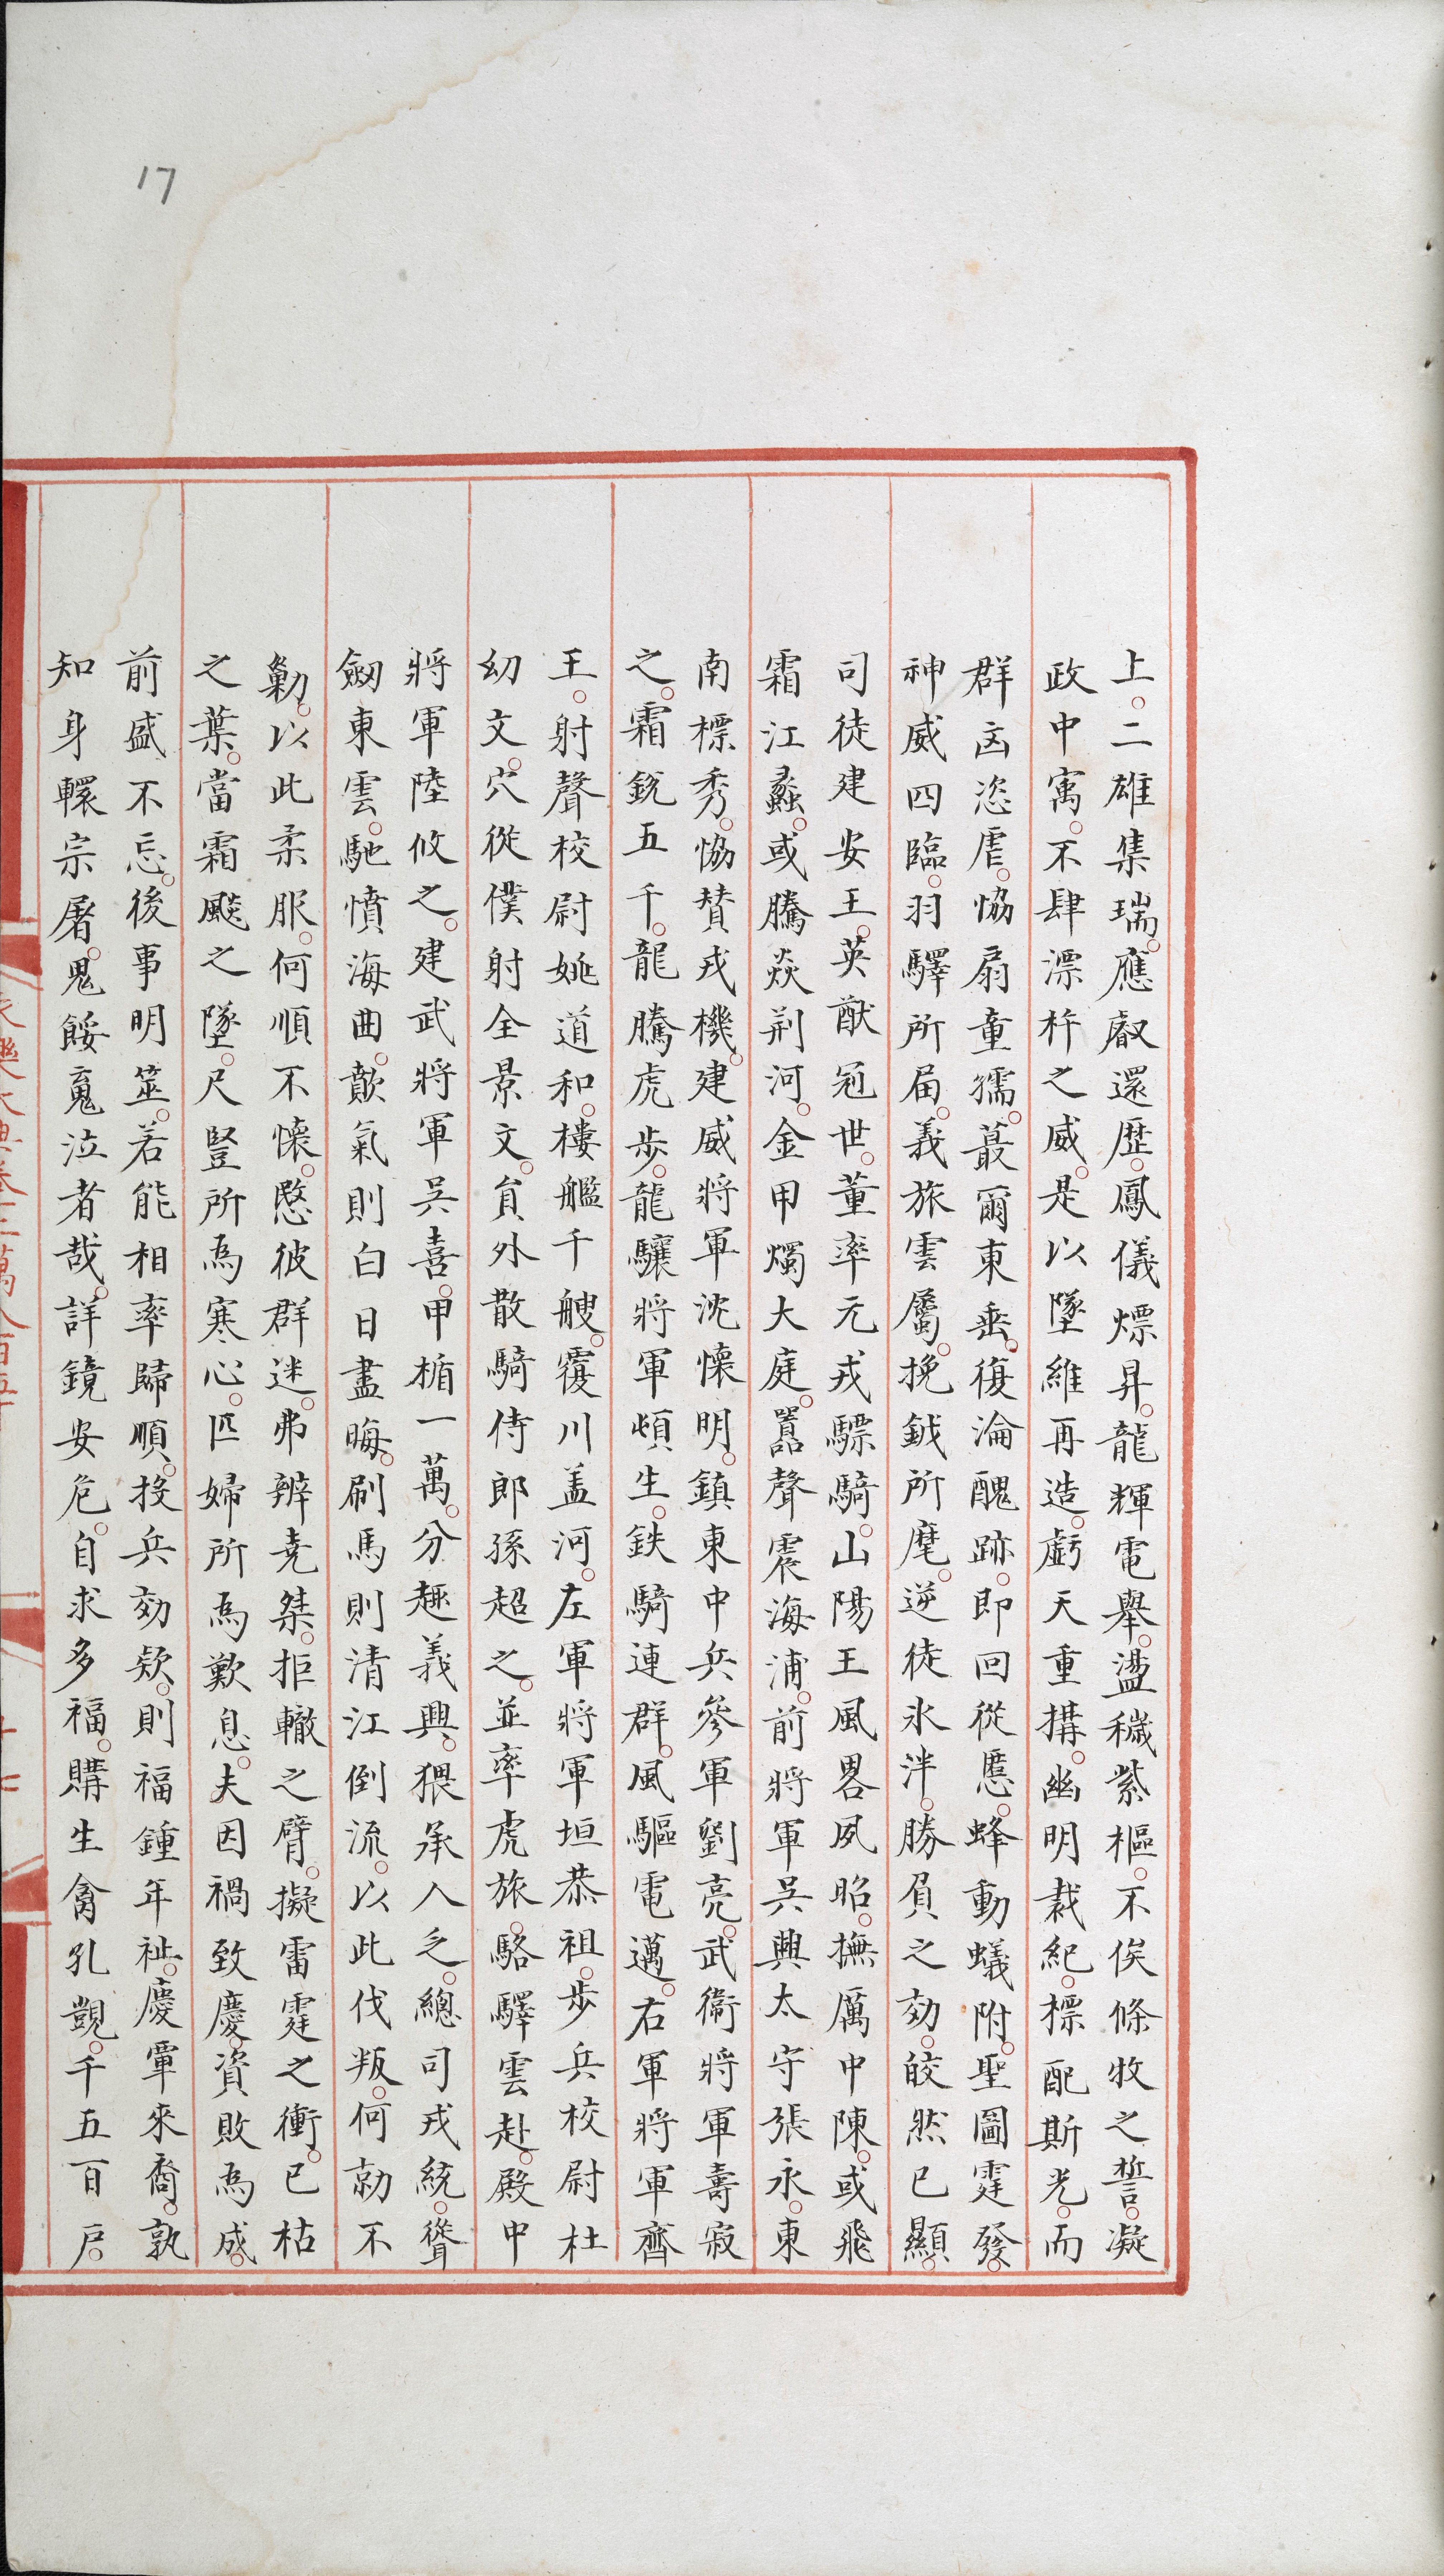 17
上。二雄集瑞。應叡還歴。鳳儀熛昇。龍輝電舉。盪穢紫樞。不俟條牧之誓。凝
政中㝢。不肆漂杵之威。是以墜維再造。虧天重搆。幽明裁紀。標配斯光。而
群凶恣虐。恊扇童孺。蕞爾東垂。復淪醜跡。即回從慝。蜂動蟻附。聖圖霆發。
神威四臨。羽驛所屆。義旅雲屬。挽鉞所麾。逆徒氷泮。勝負之効。皎然已顯。
司徒建安王。英猷冠世。董率元戎驃騎。山陽王風畧夙昭。撫厲中陳。或飛
霜江蠡。或騰焱荆河。金甲燭大庭。嚣聲震海浦。前將軍吳興太守張永。東
南標秀。恊賛戎機。建威將軍沈懷明。鎮東中兵參軍劉亮。武衞將軍壽寂
之。霜銳五千。龍騰虎步。龍驤將軍頓生。鉄騎連群。風驅電邁。右軍將軍齊
王。射聲校尉姚道和。樓艦千艘。覆川盖河。左軍將軍垣恭祖。步兵校尉杜
幼文。穴從僕射全景文。負外散騎侍郎孫超之。並率虎旅。駱驛雲赴。殿中
將軍陸攸之。建武將軍吳喜。甲楯一萬。分趣義興。猥承人乏。總司戎統。聳
劒東雲。馳憤海曲。歕氣則白日盡晦。刷馬則清江倒流。以此伐叛。何勍不
勦。以此柔服。何順不懷。愍彼群迷。弗辨堯桀。拒轍之臂。擬雷霆之衝。已枯
之葉。當霜飈之墜。尺豎所爲寒心。匹婦所爲歎息。夫因禍致慶。資敗爲成。
前盛不忘。後事明筮。若能相率歸順。投兵効欵。則福鍾年祉。慶覃來裔。孰
知身轘宗屠。鬼餒䰟泣者哉。詳鏡安危。自求多福。購生禽孔覬。千五百戶。